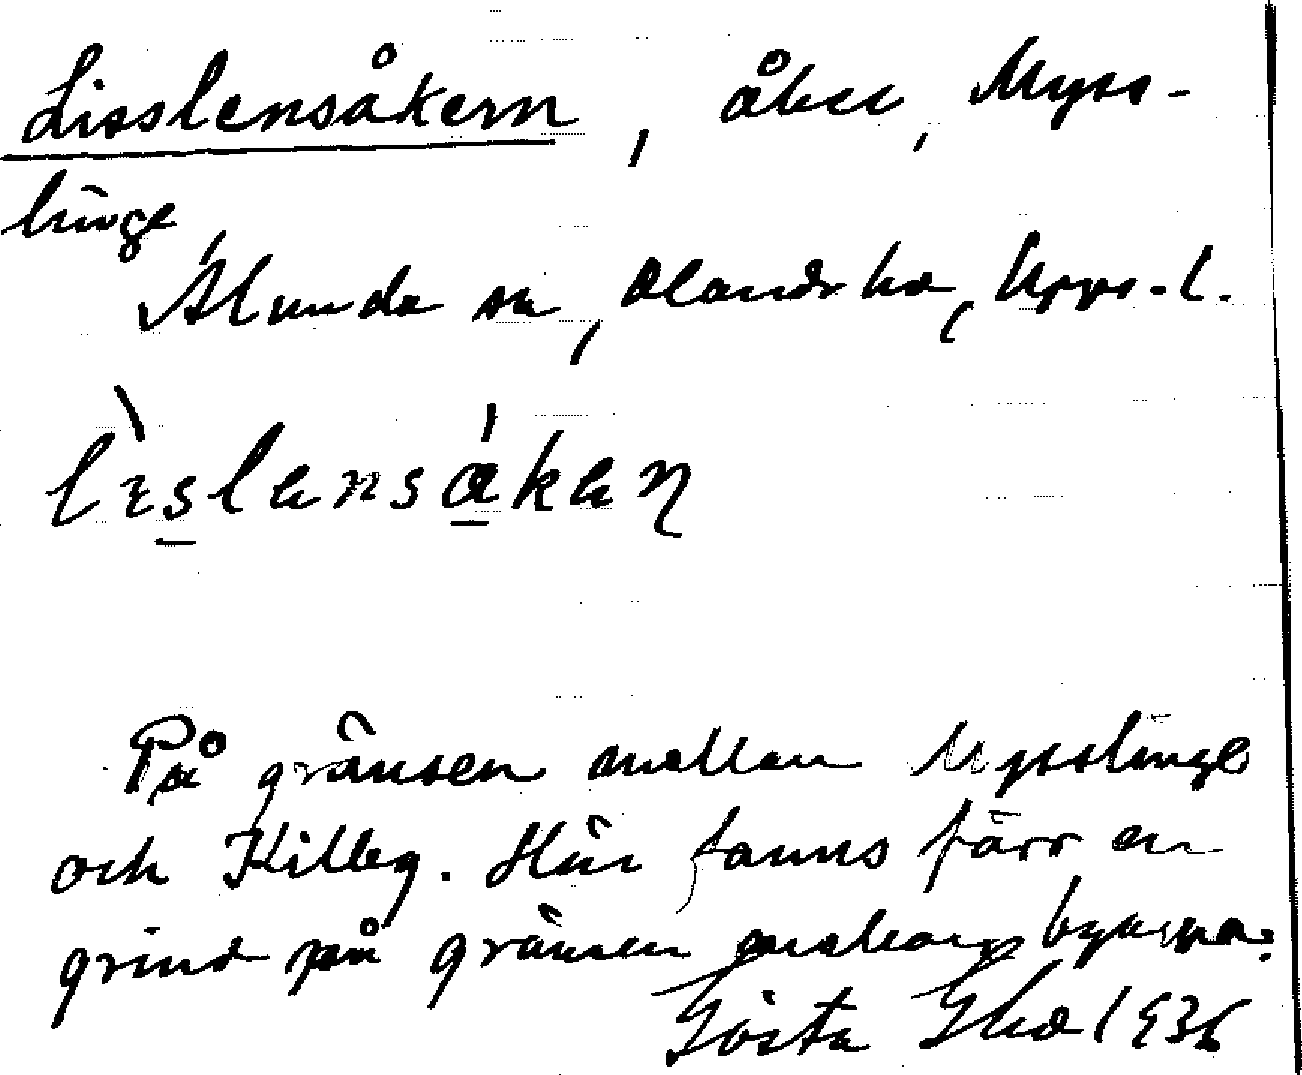 Lisslensåkern, åker, Myss-
linge
Alunda sn, Olands hd, Upps. l.
lislensåkaɳ
På gränsen mellan Mysslinge
och Killeg. Här fanns förr en
grind på gränsen mellan byarna.
Gösta 1936